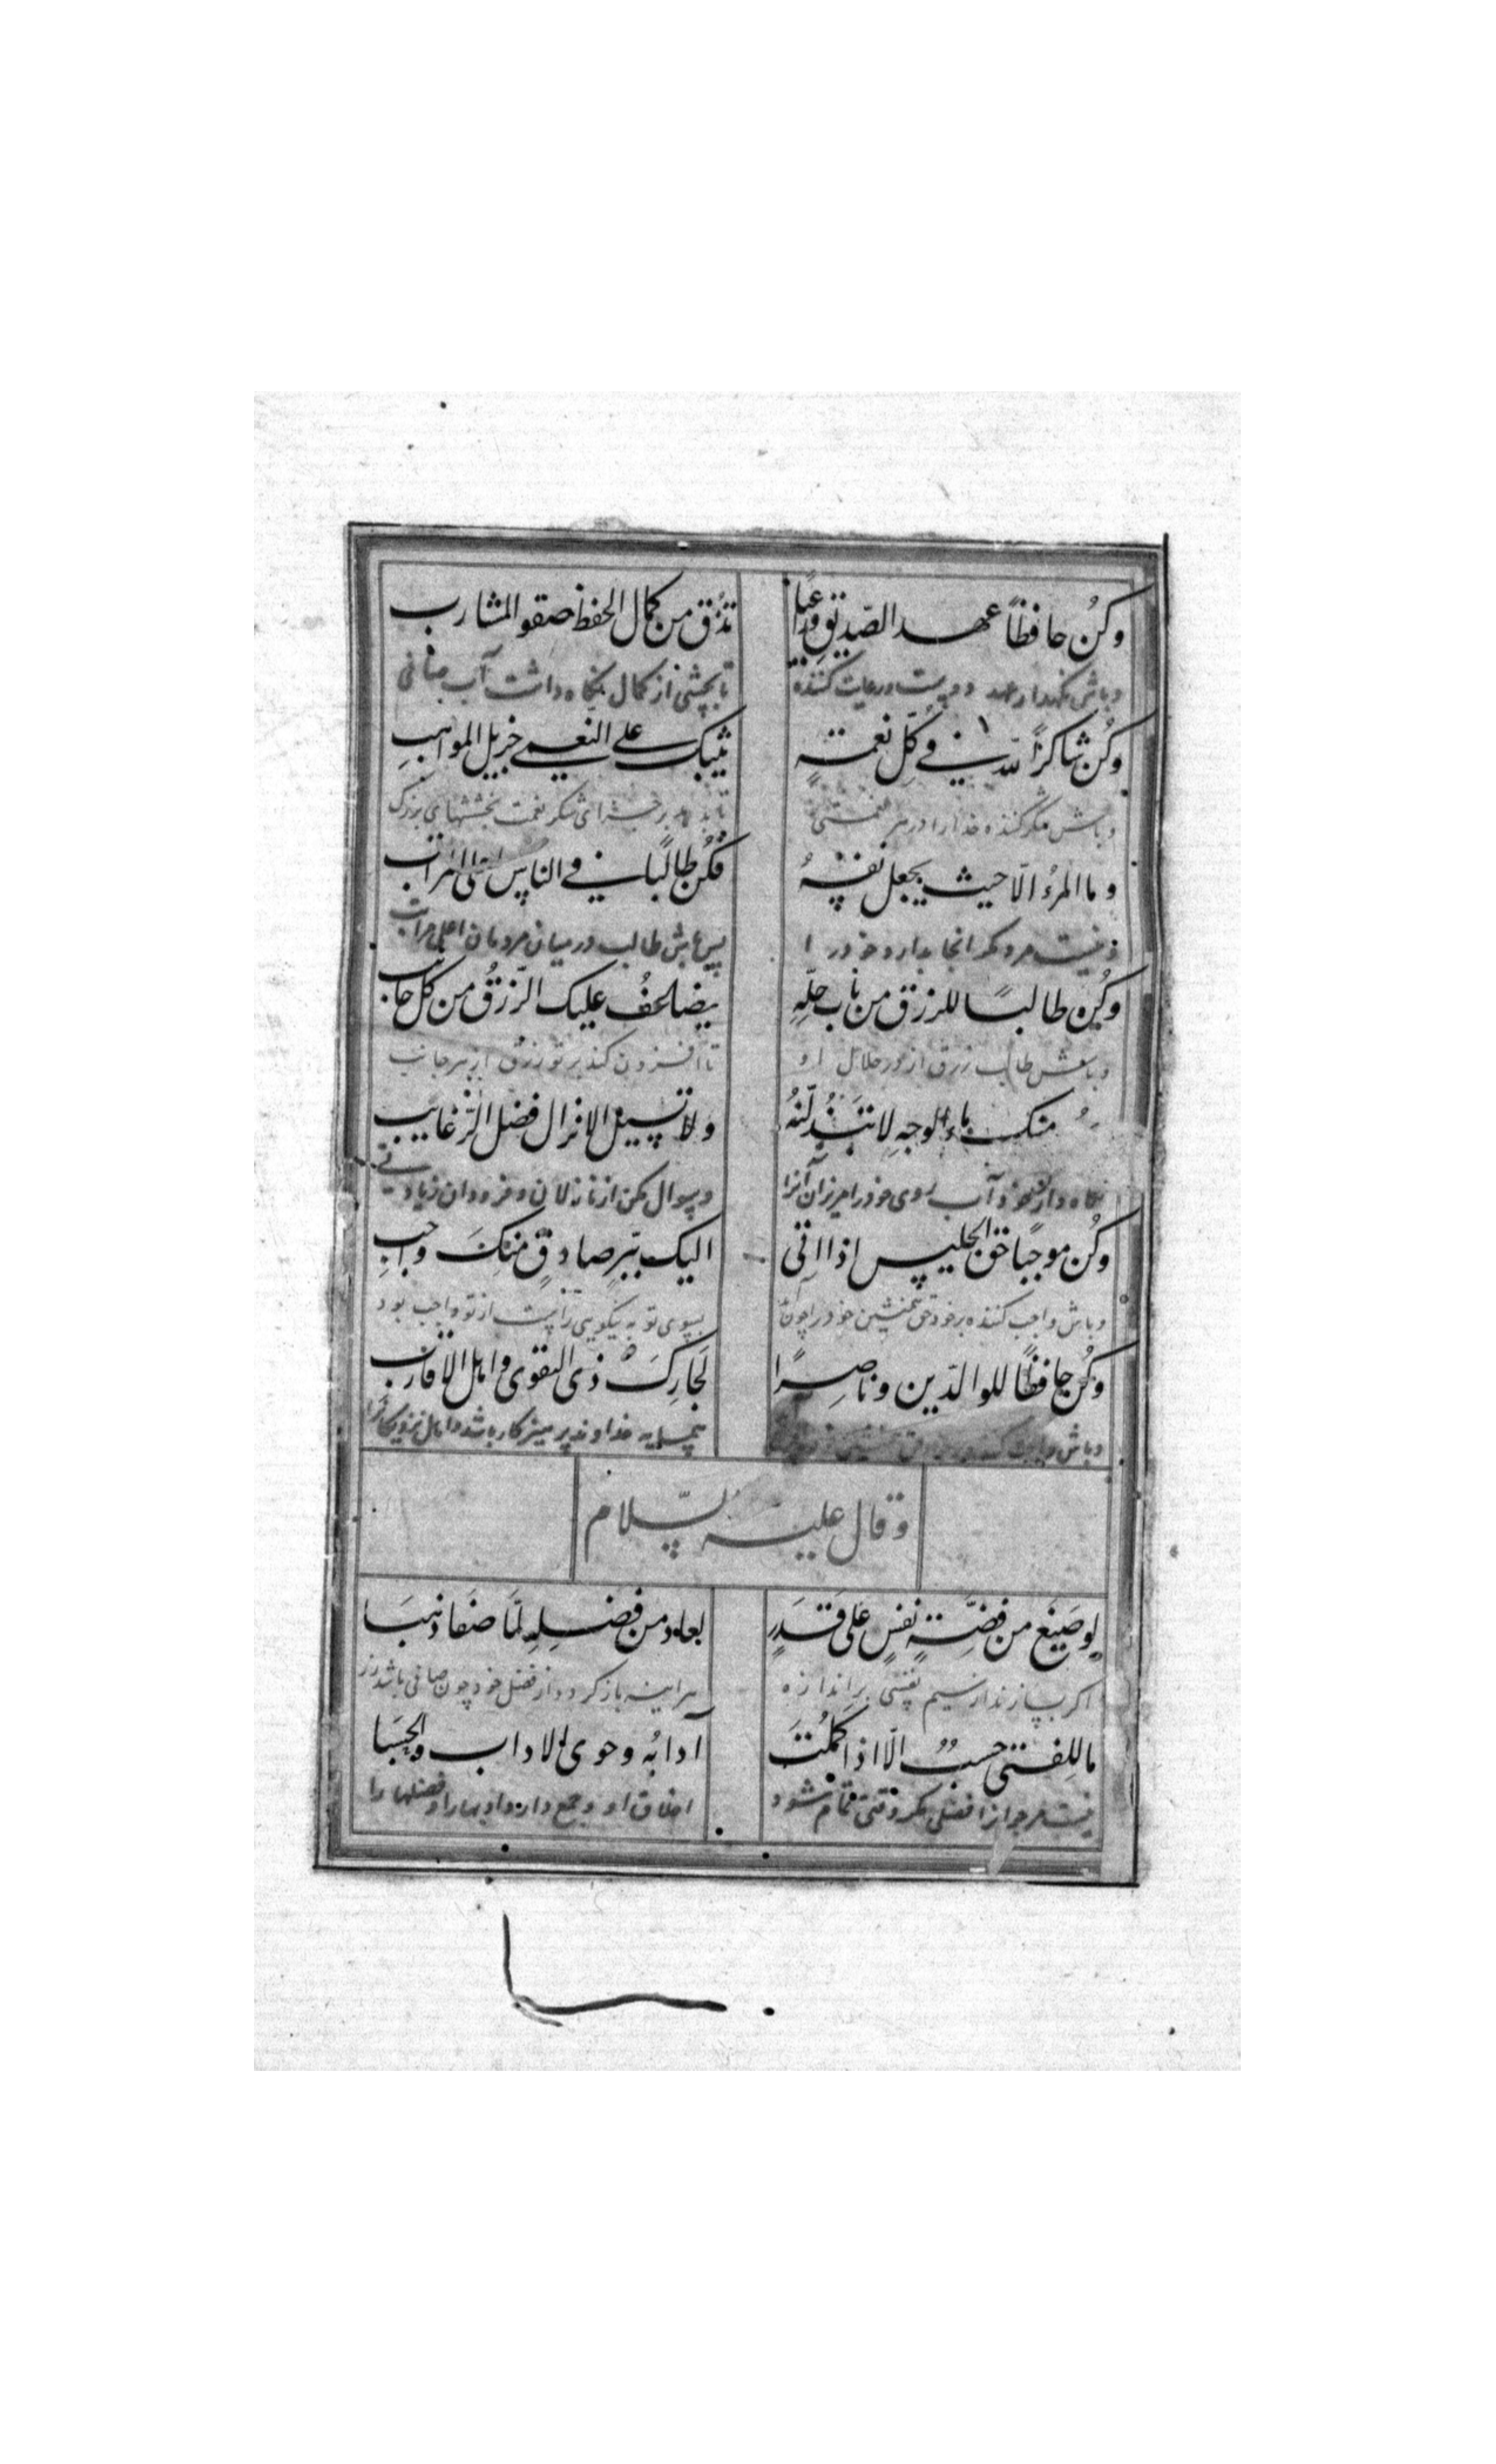 وكُن حافظاً عهد الصّديقِ وراعيًا تذُق من كمال الحفظ صفو المشارب
وباش نگهدار عهد دوست ورعايت كننده تا بچشى از كمال نگاه داشت آب صافى
وكُن شاكرًا لله فى كلّ نعمةٍ يثيبك على النعمى جزيل المواهبِ
وباش شكر كننده خدا را در هر نعمتى شكر نعمت بخششهاى بزرگ
وما المرءُ الّا حيث يجعل نفسهُ فكُن طالبًا فى الناس اعلى المراتب
ونيست مرد مگر انجا بدارد خود را پس باش طالب در ميان مردمان اعلى مراتب
وكُن طالبًا للرزق من باب حلّهِ يضاعف عليك الرّزقُ من كل جانب
وباش طالب رزق از در حلال او تا افزون كند بر تو رزق از هر جانب
منك ماء الوجهِ لا تبذُلنّهُ ولا تسئل الانذال فضل الرّغايب
نگاه دار خود آب روى خود را مريزان آنرا وسوال مكن از نازلان و فرودان زيادتى
وكُن موجبًا حق الجليس اذا اتى اليك ببّرٍ صادقٍ منكَ واجبِ
وباش واجب كننده بر خود حق همنشين خود را چون آيد بسوى تو به نيكويى راست از تو واجب بود
وكُن حافظًا للوالدين وناصرًا لجارِكَ ذى التقوى واهل الاقارب
وباش همسايه خداوند پرهيزكار باشد واهل نزديكانرا
وقال عليه السّلام
لو صيغَ من فضّةٍ نفسٍ على قدَرٍ لعاد من فضلِهِ لمّا صفا ذهبَا
اگر بسازند از سيم نفسى بر اندازه هراينه باز گردد از فضل خود چون صافى باشد زر
ما للفتى حسبٌ الّا اذا كملُتَ آدابُه وحوى الاداب والحسَبا
نيست مر جوانرا فضلى مگر وقتى تمام شود اخلاق او وجمع دارد ادبها را وفضلها را